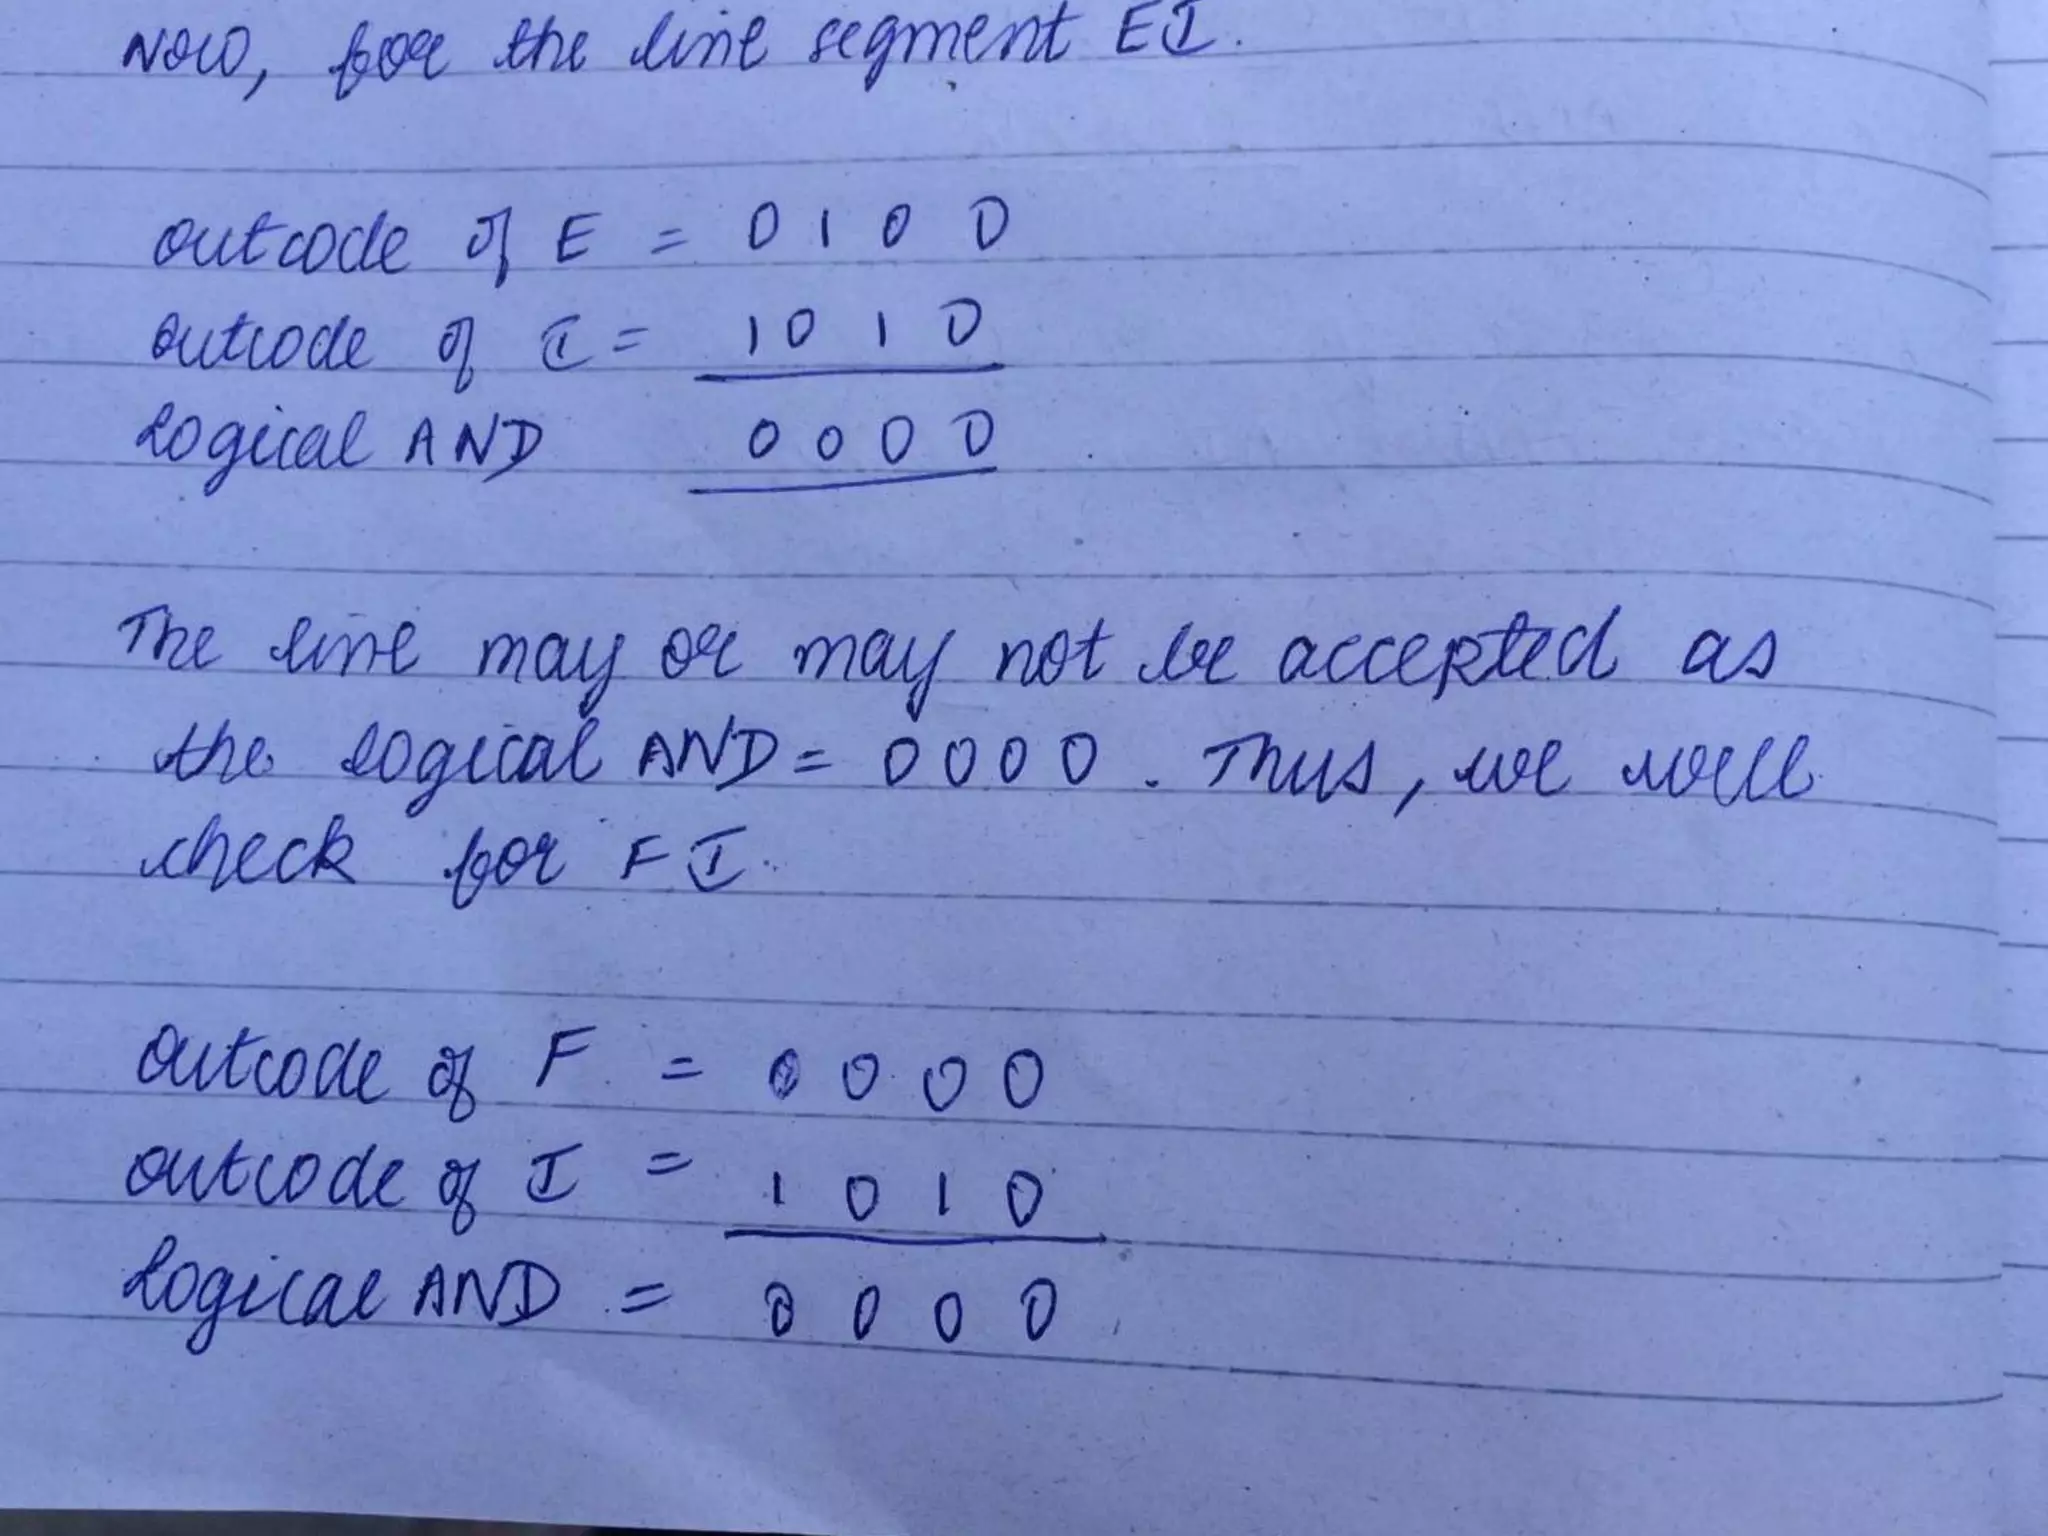 Now, for the line segment EI.
outcode of E = 0 1 0 0
outcode of I = 1 0 1 0
Logical AND 0 0 0 0
The line may or may not be accepted as
the logical AND = 0 0 0 0. Thus, we will
check for FI.
outcode of F = 0 0 0 0
outcode of I = 1 0 1 0
Logical AND = 0 0 0 0